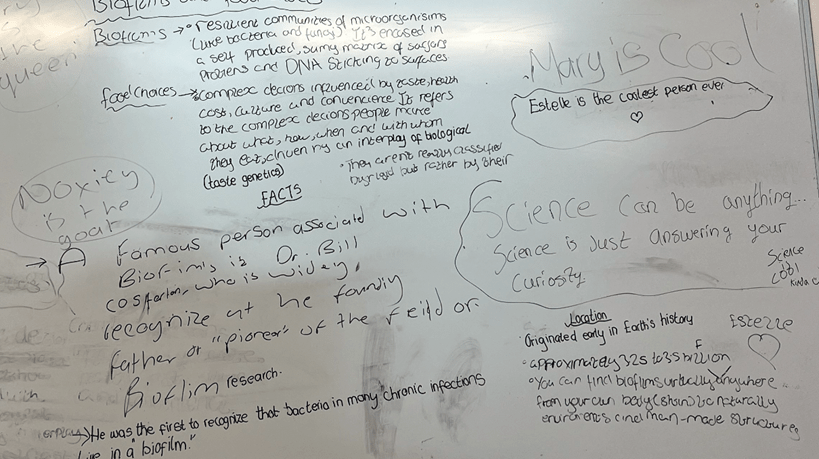 Biofilms
Biofilms → • resilient communities of microorganisims
(like bacteria and fungi) It's encased in
a self produced, slimy matrix of sugars
Proteins and DNA Sticking to surfaces
food choices → • complex decions influenced by taste, health
cost, culture and convenience It refers
to the complex decions people make
about what, how, when and with whom
they eat, driven by an interplay of biological
(taste genetics)
• They arent really classified
but rather by their
FACTS
queen
Mary is Cool
Estelle is the coolest person ever
♡
Noxity
is the
goat
Science can be anything...
Science is Just answering your
curiosity
Science
cool
kinda
→ A famous person associated with
Biofilms is Dr. Bill
who is widey,
recognize at he
father or "pioneer" of the feild or
Bioflim research.
He was the first to recognize that bacteria in many "chronic infections
live in a "biofilm."
Location
• Originated early in Earth's history
• approximately 3.25 to 3.5 billion
• You can find biofilms virtually anywhere
from your own body (skin) to naturally
enviroments and man-made structures
Estelle
♡